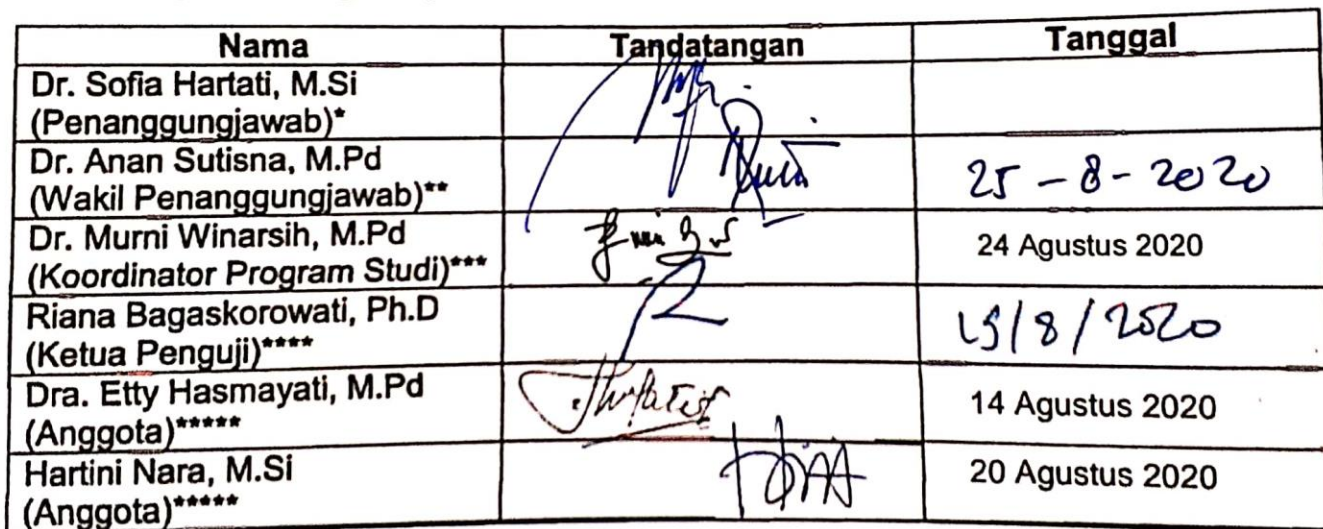 Nama Tandatangan Tanggal
Dr. Sofia Hartati, M.Si
(Penanggungjawab)*
Dr. Anan Sutisna, M.Pd
(Wakil Penanggungjawab)** 25 - 8 - 2020
Dr. Murni Winarsih, M.Pd
(Koordinator Program Studi)*** 24 Agustus 2020
Riana Bagaskorowati, Ph.D
(Ketua Penguji)**** 15/8/2020
Dra. Etty Hasmayati, M.Pd
(Anggota)***** 14 Agustus 2020
Hartini Nara, M.Si
(Anggota)***** 20 Agustus 2020